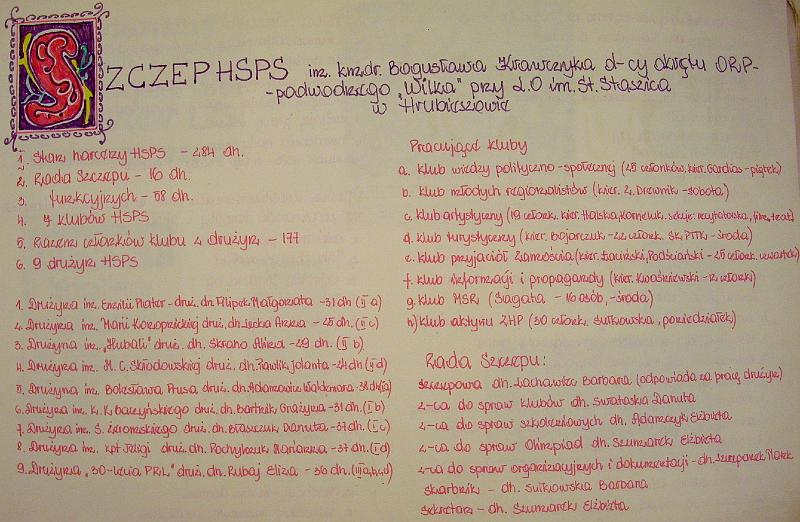 SZCZEP HSPS im. kmdr. Bogusława Krawczyka d-cy okrętu ORP-
-podwodnego "Wilka" przy L.O im. St. Staszica
w Hrubieszowie
1. Stan harcerzy HSPS - 484 dh.
2. Rada Szczepu - 16 dh.
3. funkcyjnych - 58 dh.
4. 7 klubów HSPS
5. Razem członków klubu i drużyn - 177
6. 9 drużyn HSPS
1. Drużyna im. Emilii Plater - druż. dh. Filipek Małgorzata - 31 dh (II a)
2. Drużyna im. Marii Konopnickiej druż. dh. Lecka Anna - 25 dh. (II c)
3. Drużyna im. "Hubali" druż. dh. Skraho Alina - 29 dh. (II b)
4. Drużyna im. M. C. Skłodowskiej druż. dh. Pawlik Jolanta - 24 dh (II d)
5. Drużyna im. Bolesława Prusa druż. dh. Adamowicz Waldemara - 38 dh (I a)
6. Drużyna im. K. K. Baczyńskiego druż. dh. Bartnik Grażyna - 31 dh. (I b)
7. Drużyna im. S. Żeromskiego druż. dh. Błaszczuk Danuta - 37 dh. (I c)
8. Drużyna im. kpt. Żeligi druż. dh. Pochylczuk Marianna - 37 dh. (I d)
9. Drużyna "30-lecia PRL" druż. dh. Rubaj Eliza - 36 dh. (III a, b, c, d)
Pracujące kluby
a. klub wiedzy polityczno-społecznej (25 członków, kier. Gardias - piątek)
b. klub młodych regionalistów (kier. Z. Drewnik - sobota)
c. klub artystyczny (19 członk. kier. Halska, Korneluk. sekcje: recytatorska, film, teat)
d. klub turystyczny (kier. Bojarczuk - 22 członk. SK PTTK - środa)
e. klub przyjaciół Zamościa (kier. Łaciński, Podściański - 25 członk. czwartek)
f. klub informacji i propagandy (kier. Kwaśniewski - 12 członk.)
g. klub MSR (Siagała - 16 osób, - środa)
h) klub aktywu ZHP (30 członk. Sutkowska, poniedziałek)
Rada Szczepu:
szczepowa dh. Lachawiec Barbara (odpowiada za pracę drużyn)
z-ca do spraw klubów dh. Swatowska Danuta
z-ca do spraw szkoleniowych dh. Adamczyk Elżbieta
z-ca do spraw Olimpiad dh. Szumiarek Elżbieta
z-ca do spraw organizacyjnych i dokumentacji - dh. Szczepanek Marek
skarbnik - dh. Sutkowska Barbara
Sekretarz - dh. Szumiarek Elżbieta